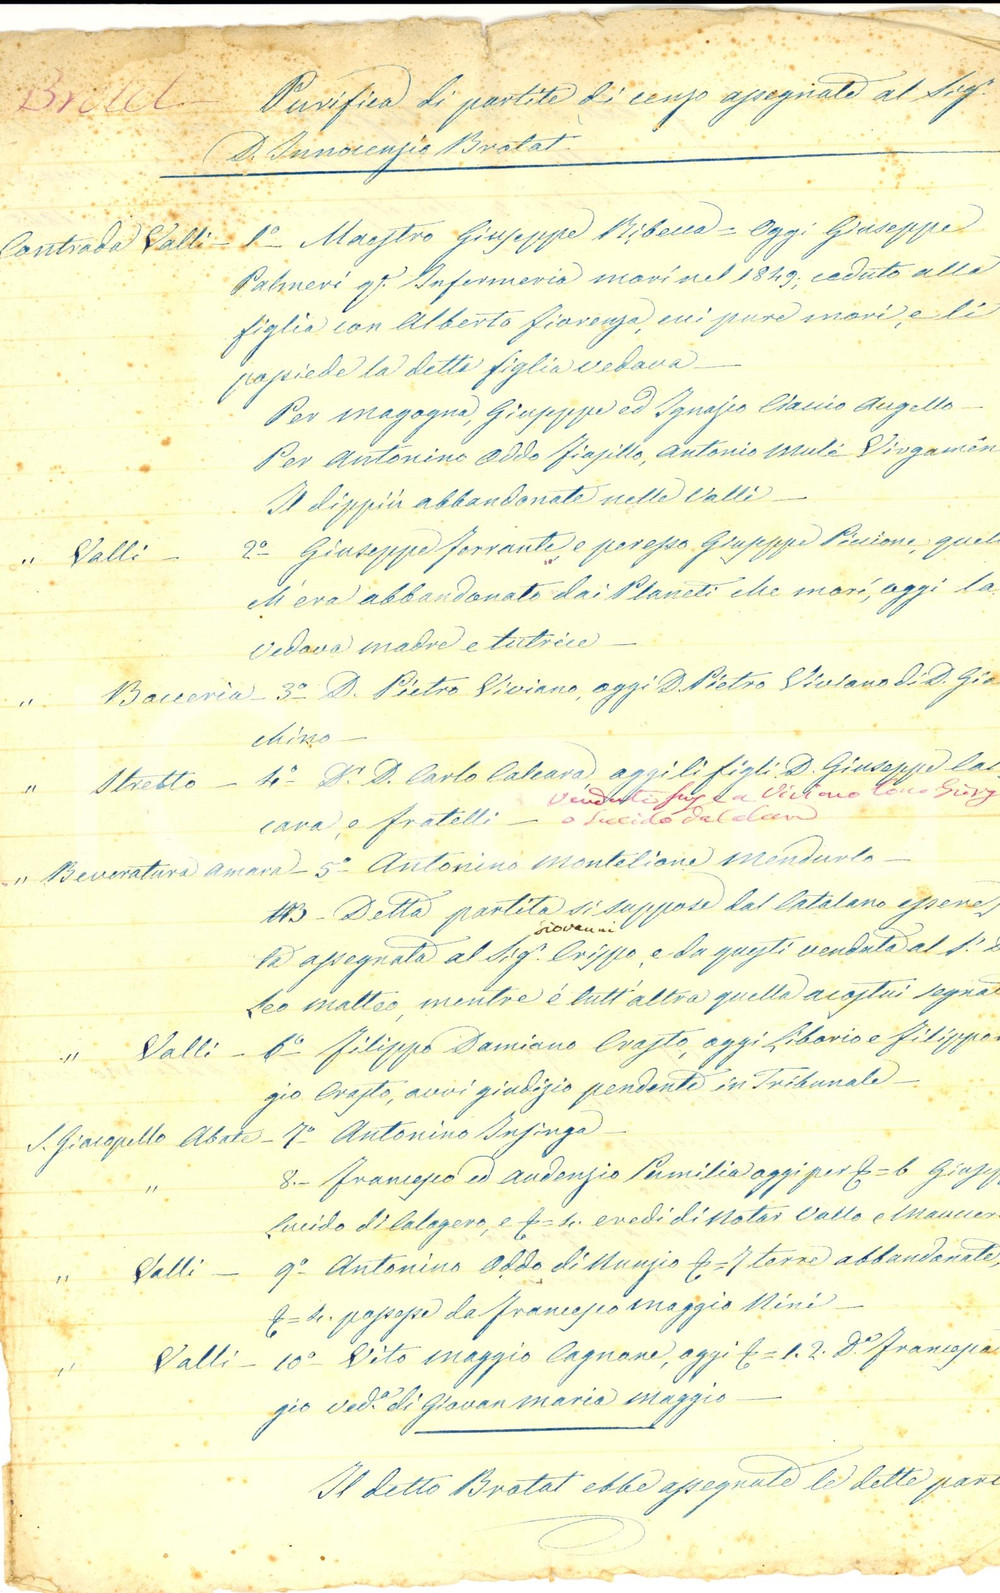 Brolat - Purifica di partite di censo assegnate al Sigr.
D. Innocenzio Brolat
Contrada Valli - 1º - Maestro Giuseppe Ribecca = Oggi Giuseppe
Palmeri qm. Infermeria morì nel 1849, caduto alla
figlia con Alberto Fiorenza, cui pure morì, e li
possiede la detta figlia vedova -
Per Magogna, Giuseppe ed Ignazio Ciaccio Augello -
Per Antonino Oddo Fiasillo, Antonio Mulè Virgamen
Il dippiù abbandonate nelle Valli -
" Valli - 2º Giuseppe Ferrante, e per esso Giuseppe Piccione, quel
ch'era abbandonato dai Planeti che morì, oggi la
vedova madre e tutrice -
" Bacceria - 3º D. Pietro Viviano, oggi D. Pietro Viviano di D. Gia
chino -
" Stretto - 4º Dr. D. Carlo Calcara, oggi li figli D. Giuseppe Cal
cara, e fratelli -
Venduti a Viviano
o Lucido
" Beveratura Amara - 5º Antonino Montelione Mendurlo -
NB - Detta partita si suppose dal Catalano essere
Giovanni
la assegnata al Sigr. Crispo, e da questi venduta al S.
Leo Matteo, mentre è tutt'altra quella a costui segnata
" Valli - 6º Filippo Damiano Crasto, oggi Liborio e Filippo
gio Crasto, avvi giudizio pendente in Tribunale -
S. Giacopello Abate - 7º Antonino Inzinga -
" 8. - Francesco ed Audenzio Pumilia oggi per £ = 6 Giusep
Lucido di Calogero, e £ = 4. eredi di Notar Vallo e Maucer
" Valli - 9º Antonino Oddo di Nunzio £ = 7 terre abbandonate,
£ = 4. possesse da Francesco Maggio Nini -
" Valli - 10º Vito Maggio Cagnone, oggi £ = 1. 2. Dª. Francesca
gio vedª. di Giovan Maria Maggio -
Il detto Brolat ebbe assegnate le dette par